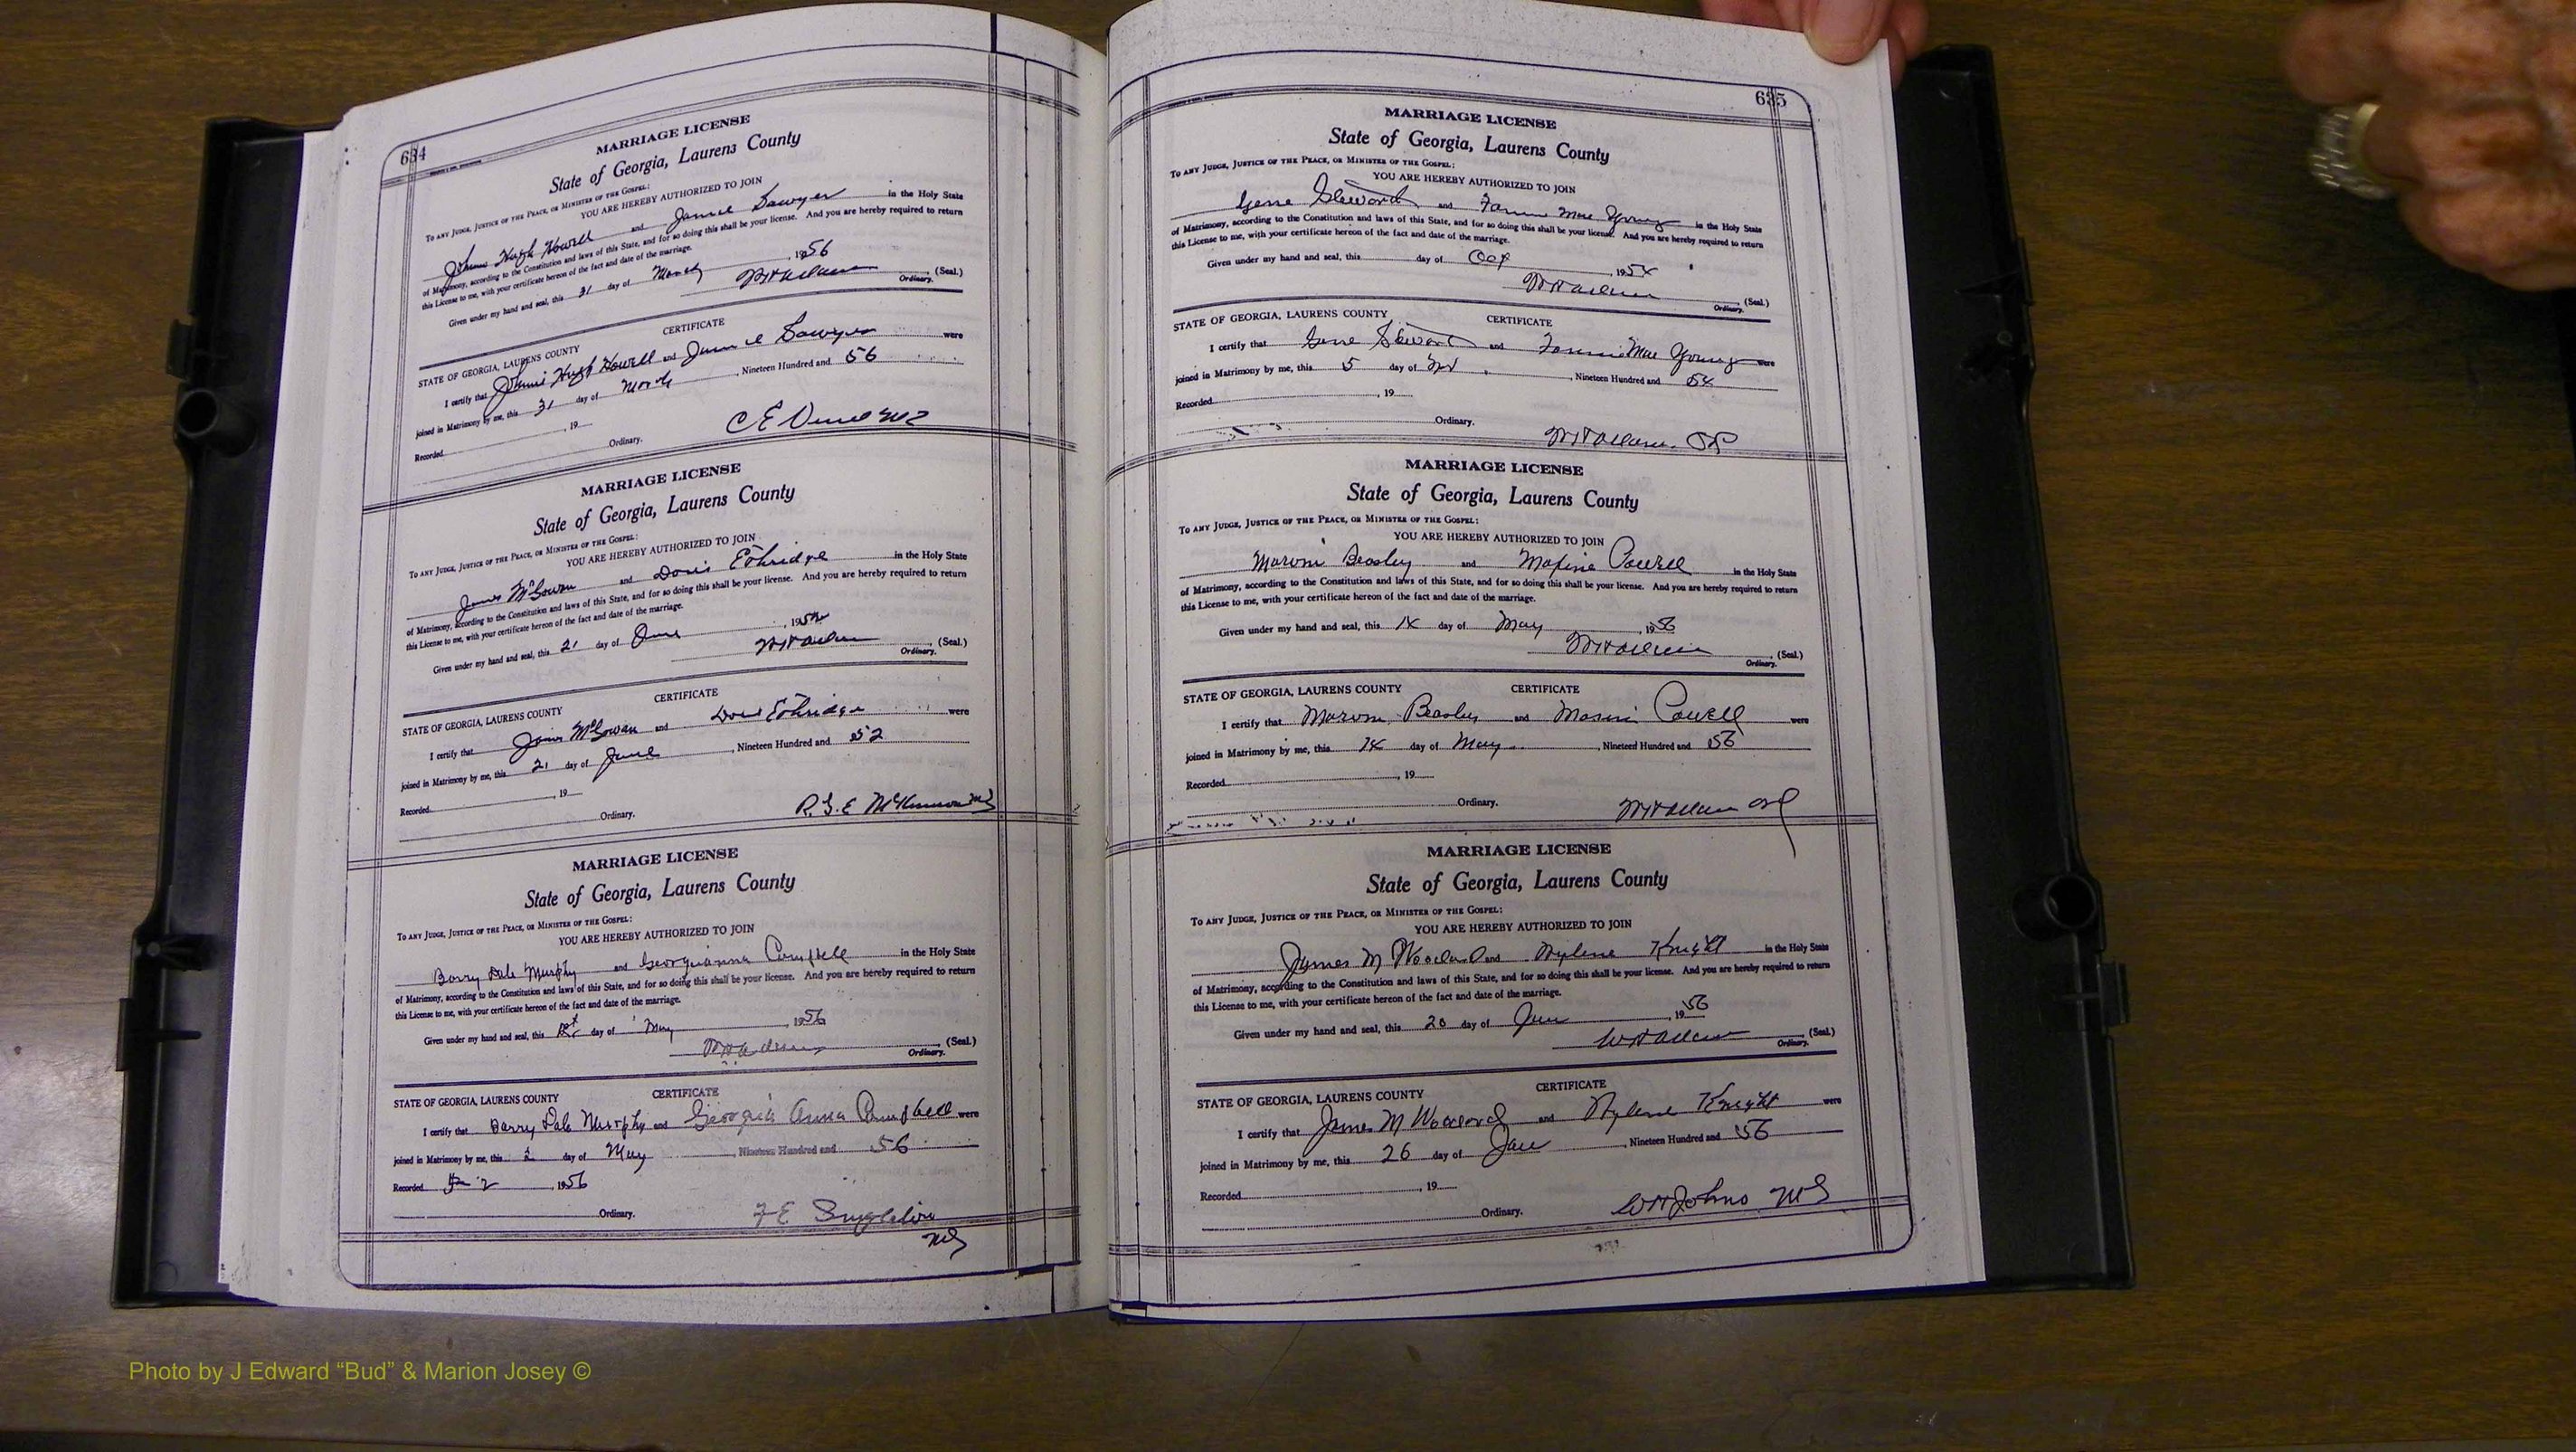 634
MARRIAGE LICENSE
State of Georgia, Laurens County
TO ANY JUDGE, JUSTICE OF THE PEACE, OR MINISTER OF THE GOSPEL:
YOU ARE HEREBY AUTHORIZED TO JOIN
Hugh Howell and Janice Sawyer in the Holy State
of Matrimony, according to the Constitution and laws of this State, and for so doing this shall be your license. And you are hereby required to return
this License to me, with your certificate hereon of the fact and date of the marriage.
Given under my hand and seal, this 31 day of March, 1956
(Seal.)
Ordinary.
CERTIFICATE
STATE OF GEORGIA, LAURENS COUNTY
I certify that Hugh Howell and Sawyer were
joined in Matrimony by me, this 31 day of March, Nineteen Hundred and 56
Recorded, 19
Ordinary.
C E
MARRIAGE LICENSE
State of Georgia, Laurens County
TO ANY JUDGE, JUSTICE OF THE PEACE, OR MINISTER OF THE GOSPEL:
YOU ARE HEREBY AUTHORIZED TO JOIN
James McGowan and Doris Ethridge in the Holy State
of Matrimony, according to the Constitution and laws of this State, and for so doing this shall be your license. And you are hereby required to return
this License to me, with your certificate hereon of the fact and date of the marriage.
Given under my hand and seal, this 21 day of June, 1952
(Seal.)
Ordinary.
CERTIFICATE
STATE OF GEORGIA, LAURENS COUNTY
I certify that James McGowan and Doris Ethridge were
joined in Matrimony by me, this 21 day of June, Nineteen Hundred and 52
Recorded, 19
Ordinary.
MARRIAGE LICENSE
State of Georgia, Laurens County
TO ANY JUDGE, JUSTICE OF THE PEACE, OR MINISTER OF THE GOSPEL:
YOU ARE HEREBY AUTHORIZED TO JOIN
Barry Dale Murphy and Georgianna Campbell in the Holy State
of Matrimony, according to the Constitution and laws of this State, and for so doing this shall be your license. And you are hereby required to return
this License to me, with your certificate hereon of the fact and date of the marriage.
Given under my hand and seal, this day of May, 1956
(Seal.)
Ordinary.
CERTIFICATE
STATE OF GEORGIA, LAURENS COUNTY
I certify that Barry Dale Murphy and Georgia Anna Campbell were
joined in Matrimony by me, this 2 day of May, Nineteen Hundred and 56
Recorded 2, 1956
Ordinary.
F E Singleton
MG
635
MARRIAGE LICENSE
State of Georgia, Laurens County
TO ANY JUDGE, JUSTICE OF THE PEACE, OR MINISTER OF THE GOSPEL:
YOU ARE HEREBY AUTHORIZED TO JOIN
Gene Stewart and Fannie Mae Young in the Holy State
of Matrimony, according to the Constitution and laws of this State, and for so doing this shall be your license. And you are hereby required to return
this License to me, with your certificate hereon of the fact and date of the marriage.
Given under my hand and seal, this day of, 1954
(Seal.)
Ordinary.
STATE OF GEORGIA, LAURENS COUNTY CERTIFICATE
I certify that Gene Stewart and Fannie Mae Young were
joined in Matrimony by me, this 5 day of, Nineteen Hundred and 54
Recorded, 19
Ordinary.
MARRIAGE LICENSE
State of Georgia, Laurens County
TO ANY JUDGE, JUSTICE OF THE PEACE, OR MINISTER OF THE GOSPEL:
YOU ARE HEREBY AUTHORIZED TO JOIN
Beasley and Maxine Powell in the Holy State
of Matrimony, according to the Constitution and laws of this State, and for so doing this shall be your license. And you are hereby required to return
this License to me, with your certificate hereon of the fact and date of the marriage.
Given under my hand and seal, this 14 day of May, 1956
(Seal.)
Ordinary.
STATE OF GEORGIA, LAURENS COUNTY CERTIFICATE
I certify that Beasley and Powell were
joined in Matrimony by me, this 14 day of May, Nineteen Hundred and 56
Recorded, 19
Ordinary.
MARRIAGE LICENSE
State of Georgia, Laurens County
TO ANY JUDGE, JUSTICE OF THE PEACE, OR MINISTER OF THE GOSPEL:
YOU ARE HEREBY AUTHORIZED TO JOIN
James M Woodard and Nylene Knight in the Holy State
of Matrimony, according to the Constitution and laws of this State, and for so doing this shall be your license. And you are hereby required to return
this License to me, with your certificate hereon of the fact and date of the marriage.
Given under my hand and seal, this day of Jan, 1956
(Seal.)
Ordinary.
STATE OF GEORGIA, LAURENS COUNTY CERTIFICATE
I certify that James M Woodard and Nylene Knight were
joined in Matrimony by me, this 26 day of Jan, Nineteen Hundred and 56
Recorded, 19
Ordinary.
Photo by J Edward “Bud” & Marion Josey ©